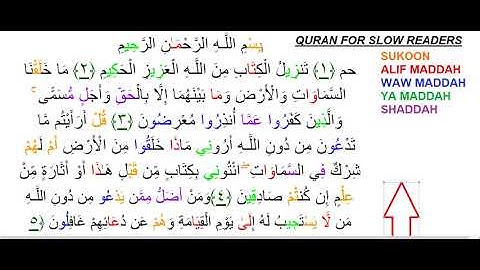 بِسْمِ اللَّهِ الرَّحْمَـٰنِ الرَّحِيمِ
QURAN FOR SLOW READERS
SUKOON
ALIF MADDAH
WAW MADDAH
YA MADDAH
SHADDAH
حم ﴿١﴾ تَنزِيلُ الْكِتَابِ مِنَ اللَّهِ الْعَزِيزِ الْحَكِيمِ ﴿٢﴾ مَا خَلَقْنَا
السَّمَاوَاتِ وَالْأَرْضَ وَمَا بَيْنَهُمَا إِلَّا بِالْحَقِّ وَأَجَلٍ مُّسَمًّى ۚ
وَالَّذِينَ كَفَرُوا عَمَّا أُنذِرُوا مُعْرِضُونَ ﴿٣﴾ قُلْ أَرَأَيْتُم مَّا
تَدْعُونَ مِن دُونِ اللَّهِ أَرُونِي مَاذَا خَلَقُوا مِنَ الْأَرْضِ أَمْ لَهُمْ
شِرْكٌ فِي السَّمَاوَاتِ ۖ ائْتُونِي بِكِتَابٍ مِّن قَبْلِ هَـٰذَا أَوْ أَثَارَةٍ مِّنْ
عِلْمٍ إِن كُنتُمْ صَادِقِينَ ﴿٤﴾ وَمَنْ أَضَلُّ مِمَّن يَدْعُو مِن دُونِ اللَّهِ
مَن لَّا يَسْتَجِيبُ لَهُ إِلَىٰ يَوْمِ الْقِيَامَةِ وَهُمْ عَن دُعَائِهِمْ غَافِلُونَ ﴿٥﴾